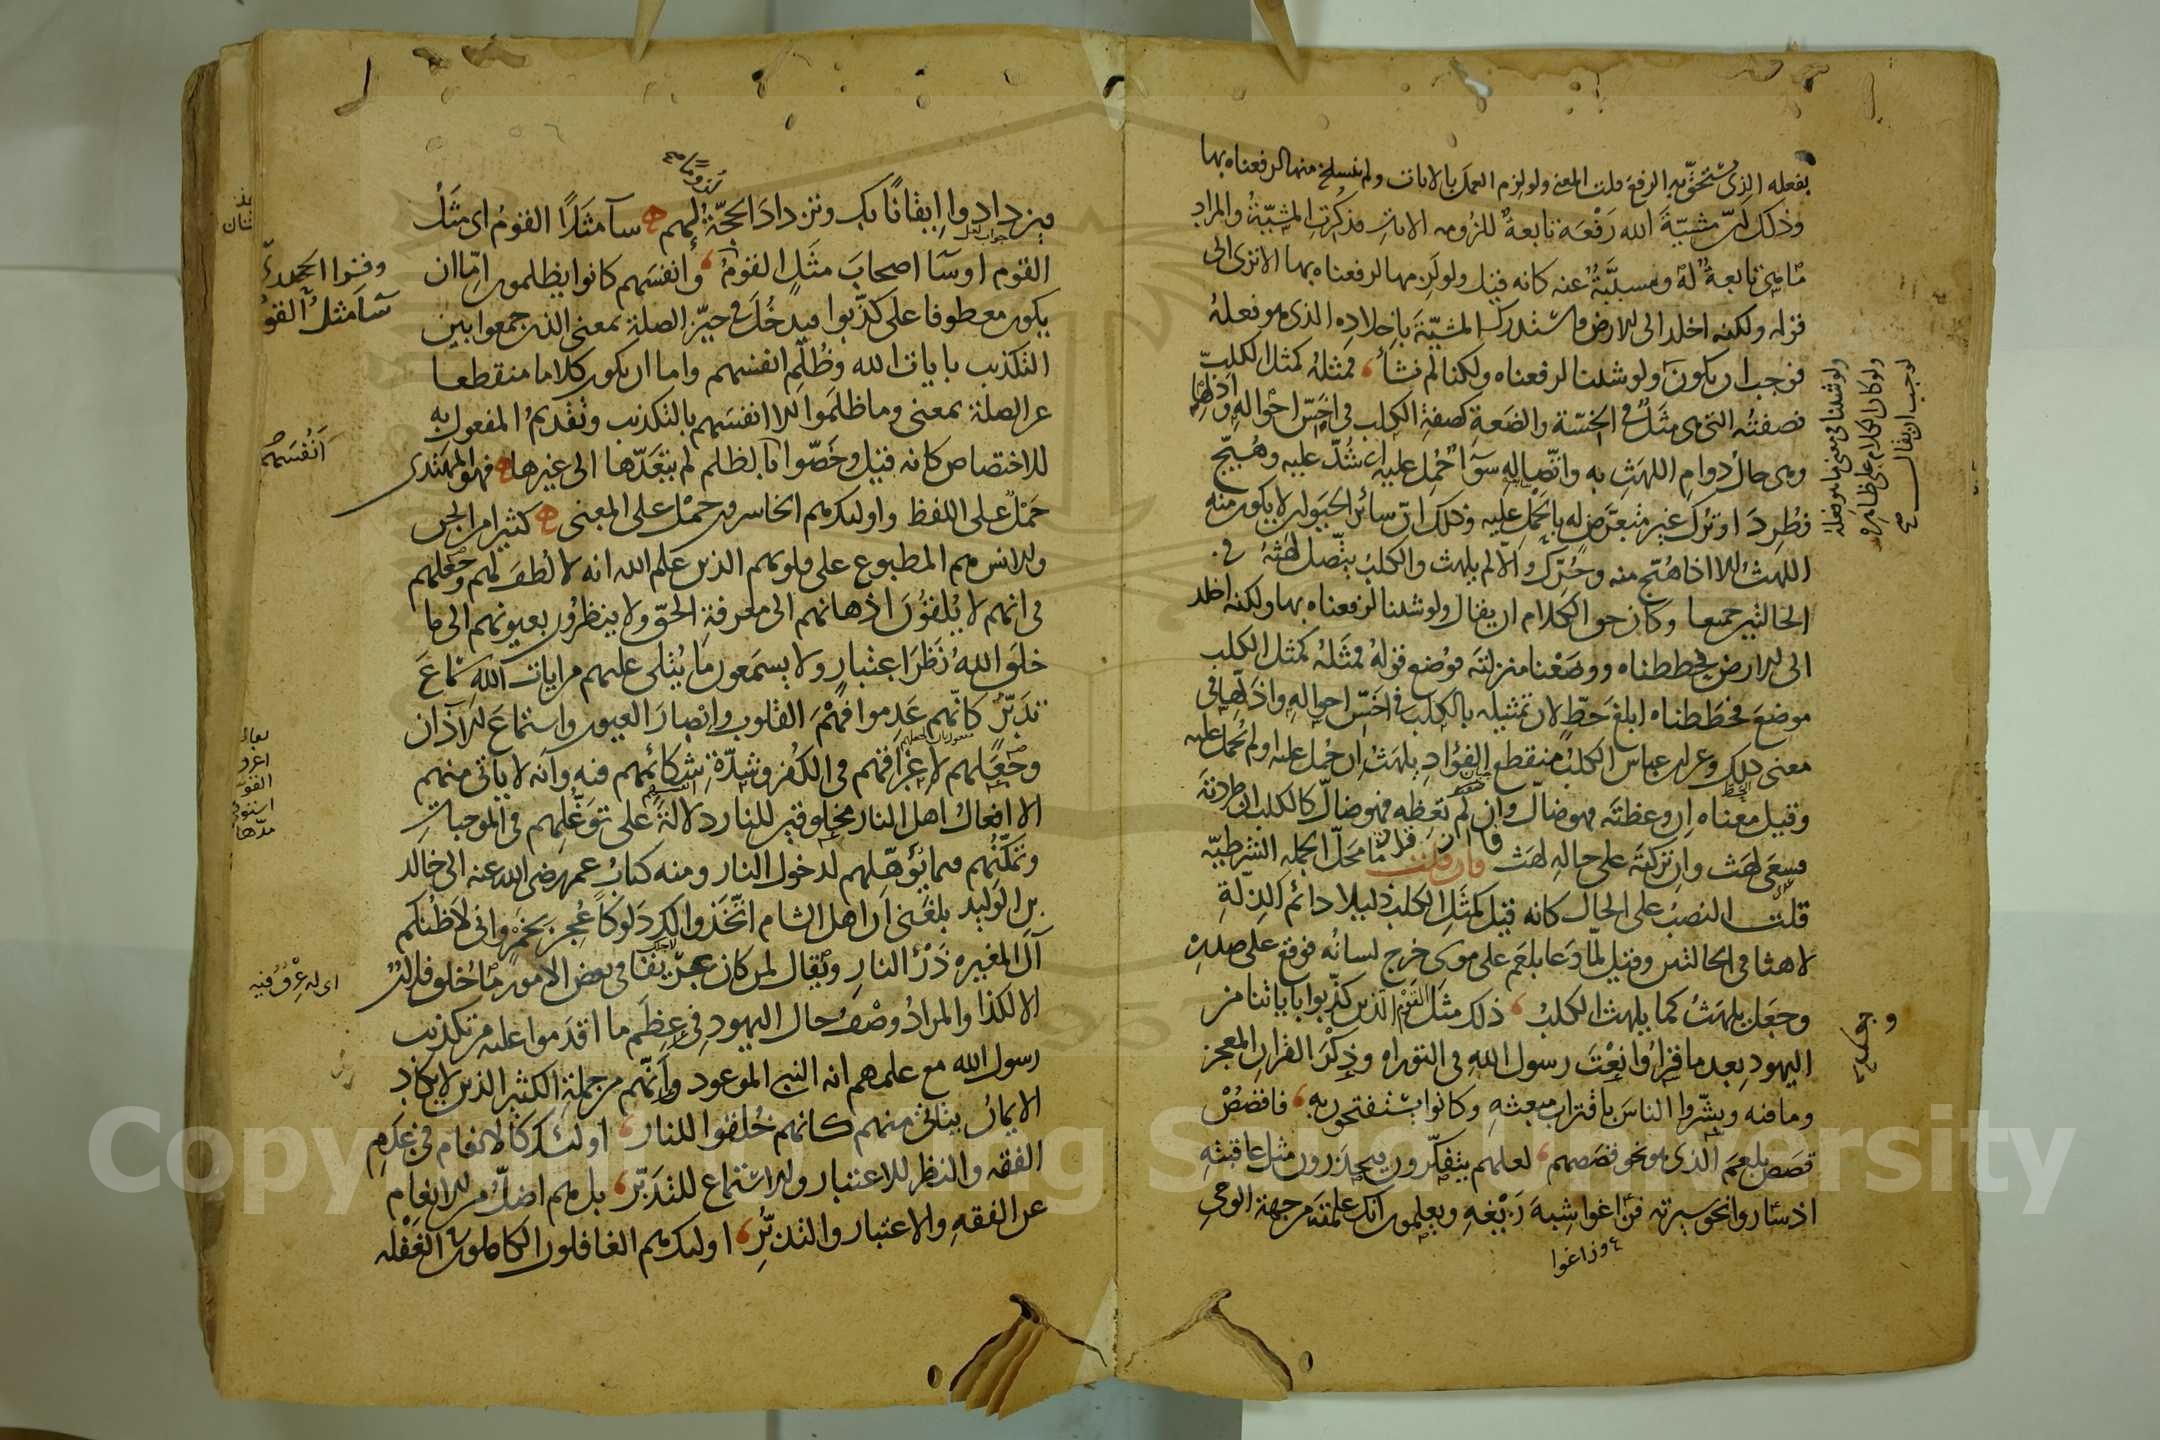 بفعله الذى يستحق به الرفع قلت المعنى ولو لزم العمل بالايات ولم ينسلخ منها لرفعناه بها
وذلك ان مشيّة الله رفعه تابعة للزومه الايات فذكرت المشيّة والمراد
ما هى تابعة له ومسببة عنه كانه قيل ولو لزمها لرفعناه بها الا ترى الى
قوله ولكنه اخلد الى الارض فاستدرك المشيّة باخلاده الذى هو فعله
فوجب ان يكون ولو شئنا لرفعناه ولكنا لم نشأ فمثله كمثل الكلب
فصفته التى هى مثل فى الخسّة والضعة كصفة الكلب فى اخسّ احواله واذلّها
وهى حال دوام اللهث به واتصاله سوآ حُمل عليه اى شُدّ عليه وهُيّج
فطُرد او تُرك غير متعرّض له بالحمل عليه وذلك ان سائر الحيوان لا يكون منه
اللهث الا اذا هُيّج منه وحُرّك والا لم يلهث والكلب يتّصل لهثه فى
الحالتين جميعا وكان حق الكلام ان يقال ولو شئنا لرفعناه بها ولكنه اخلد
الى الارض فحططناه ووضعنا منزلته فوُضع قوله فمثله كمثل الكلب
موضع فحططناه ابلغ حطّ لان تمثيله بالكلب فى اخسّ احواله واذلّها فى
معنى ذلك وعن ابن عباس الكلب منقطع الفؤاد يلهث ان حُمل عليه او لم يُحمل عليه
وقيل معناه ان وعظته فهو ضالّ وان لم تعظه فهو ضالّ كالكلب ان طردته
فسعى لهث وان تركته على حاله لهث فان قلت ما محلّ الجملة الشرطيّة
قلت النصب على الحال كانه قيل كمثل الكلب ذليلا دائم الذلّة
لاهثا فى الحالتين وقيل لمّا دعا بلعم على موسى خرج لسانه فوقع على صدره
وجعل يلهث كما يلهث الكلب ذلك مثل القوم الذين كذّبوا باياتنا من
اليهود بعد ما قرأوا نعت رسول الله فى التوراه وذكر القران المعجز
وما فيه وبشّروا الناس باقتراب مبعثه وكانوا يستفتحون به فاقصص
قصص بلعم الذى هو نحو قصصهم لعلهم يتفكّرون فيحذرون مثل عاقبته
اذ ساروا نحو سيرته وزاغوا شبه زيغه ويعلمون انك علمته من جهة الوحى
ولو شئنا فى معنى ما هو فعله
ولو كان الكلام على ظاهره
لوجب ان يقال
فيزدادوا ايقانًا بك وتزداد الحجّة لهم سآ مثلًا القوم اى مثل
القوم او سآ اصحاب مثل القوم وانفسهم كانوا يظلمون امّا ان
يكون معطوفا على كذّبوا فيدخل فى حيّز الصلة بمعنى الذين جمعوا بين
التكذيب بايات الله وظُلم انفسهم واما ان يكون كلاما منقطعا
عن الصلة بمعنى وما ظلموا الا انفسهم بالتكذيب وتقديم المفعول به
للاختصاص كانه قيل وخصّوا بالظلم لم يتعدّها الى غيرها فهو المهتدى
حمل على اللفظ واولئك هم الخاسرون حمل على المعنى كثيرا من الجن
والانس هم المطبوع على قلوبهم الذين علم الله انه لا لطف لهم وجعلهم
فى انهم لا يُلقون اذهانهم الى معرفة الحقّ ولا ينظرون بعيونهم الى ما
خلق الله نظر اعتبار ولا يسمعون ما يُتلى عليهم من ايات الله سماع
تدبّر كانّهم عدموا فهم القلوب وابصار العيون واستماع الآذان
وجعلهم لاعراقهم فى الكفر وشدّة شكائمهم فيه وانه لا يأتى منهم
الا افعال اهل النار مخلوقين للنار دلالة على توغّلهم فى الموجبات
وتمكّنهم فيما يؤهّلهم لدخول النار ومنه كتاب عمر رضى الله عنه الى خالد
بن الوليد بلغنى ان اهل الشام اتّخذوا لك دلوكًا عُجن بخمر وانى لاظنكم
آل المغيره ذرْءَ النار ويقال لمن كان عريقا فى بعض الامور ما خُلق فلان
الا لكذا والمراد وصف حال اليهود فى عظم ما اقدموا عليه من تكذيب
رسول الله مع علمهم انه النبى الموعود وانّهم من جملة الكثير الذين لا يكاد
الايمان يتأتّى منهم كانهم خُلقوا للنار اولئك كالانعام فى عدم
الفقه والنظر للاعتبار والاستماع للتدبّر بل هم اضلّ من الانعام
عن الفقه والاعتبار والتدبّر اولئك هم الغافلون الكاملون الغفله
وقرا الجحدرى
سآ مثل القوم
انفسهم
اى له عرق فيه